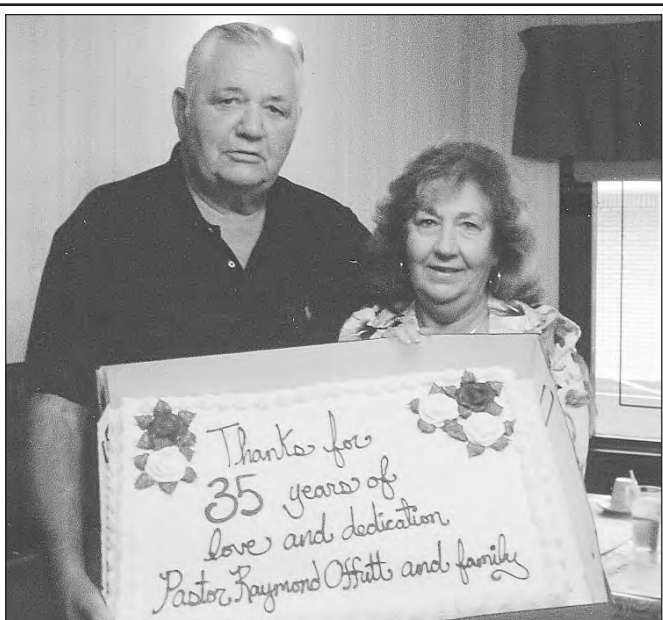 Thanks for
35 years of
love and dedication
Pastor Raymond Offutt and family